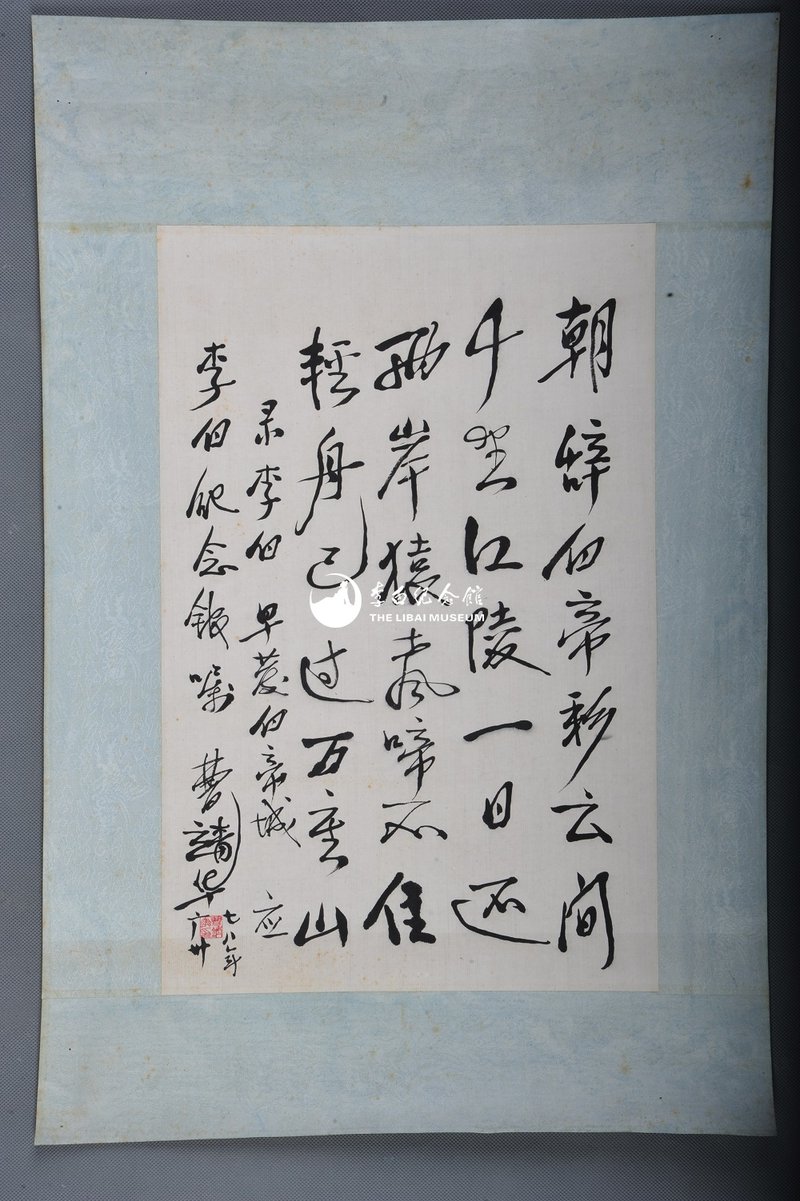 朝辞白帝彩云间
千里江陵一日还
两岸猿声啼不住
轻舟已过万重山
录李白 早发白帝城 应
李白纪念馆嘱 曹靖华
七八年
广州
李白纪念館
THE LIBAI MUSEUM